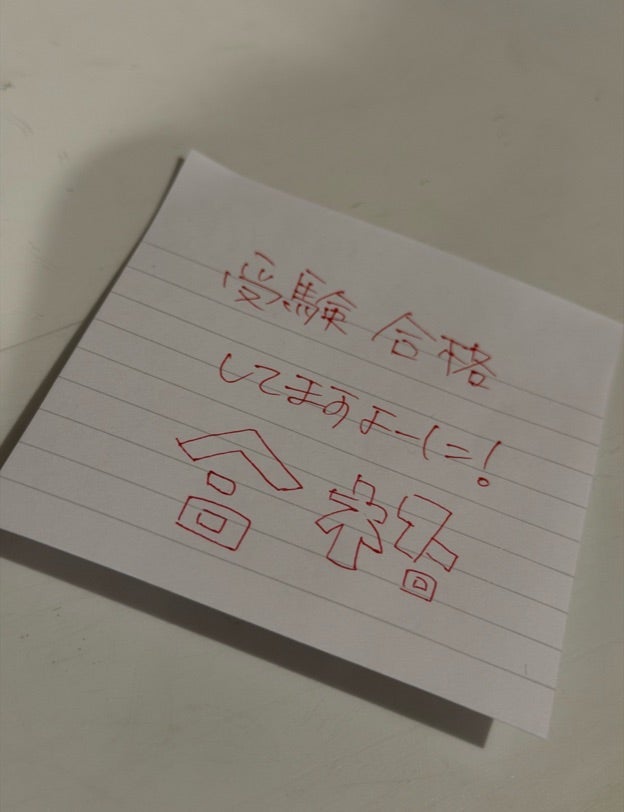 受験 合格
してますよーに!
合格